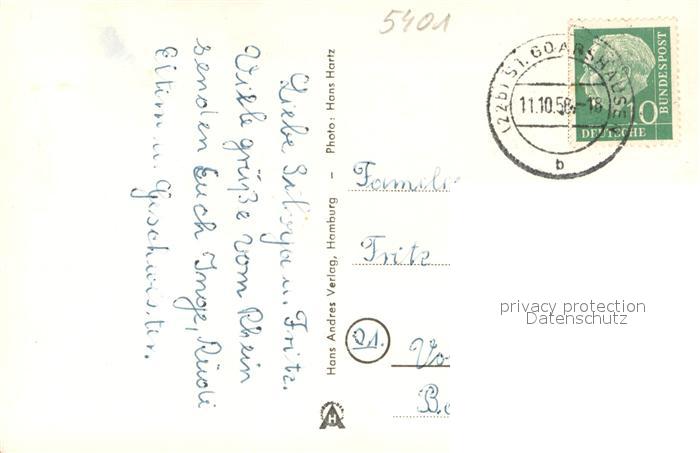 5401
Liebe Silvya u. Fritz.
Viele grüße vom Rhein
senden Euch Inge, Rudi
Eltern u. Geschwister.
Hans Andres Verlag, Hamburg - Photo: Hans Hartz
(22b) ST. GOARSHAUSEN
11.10.58-18
b
10
DEUTSCHE
BUNDESPOST
Famil
Fritz
21.
Vo
Be
privacy protection
Datenschutz
AH